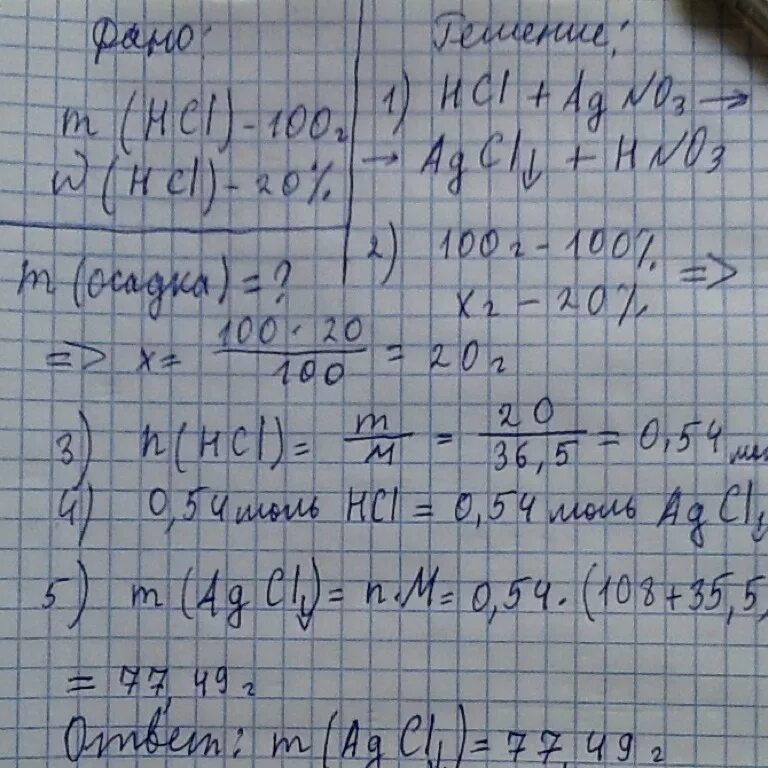 Дано:
m (HCl) - 100г
w (HCl) - 20%
m (осадка) = ?
Решение:
1) HCl + AgNO₃ →
→ AgCl↓ + HNO₃
2) 100г - 100%
xг - 20% =>
=> x = 100 · 20 / 100 = 20г
3) n(HCl) = m/M = 20/36,5 = 0,54 мол
4) 0,54 моль HCl = 0,54 моль AgCl↓
5) m (AgCl↓) = n·M = 0,54 · (108 + 35,5)
= 77,49г
Ответ: m (AgCl↓) = 77,49г